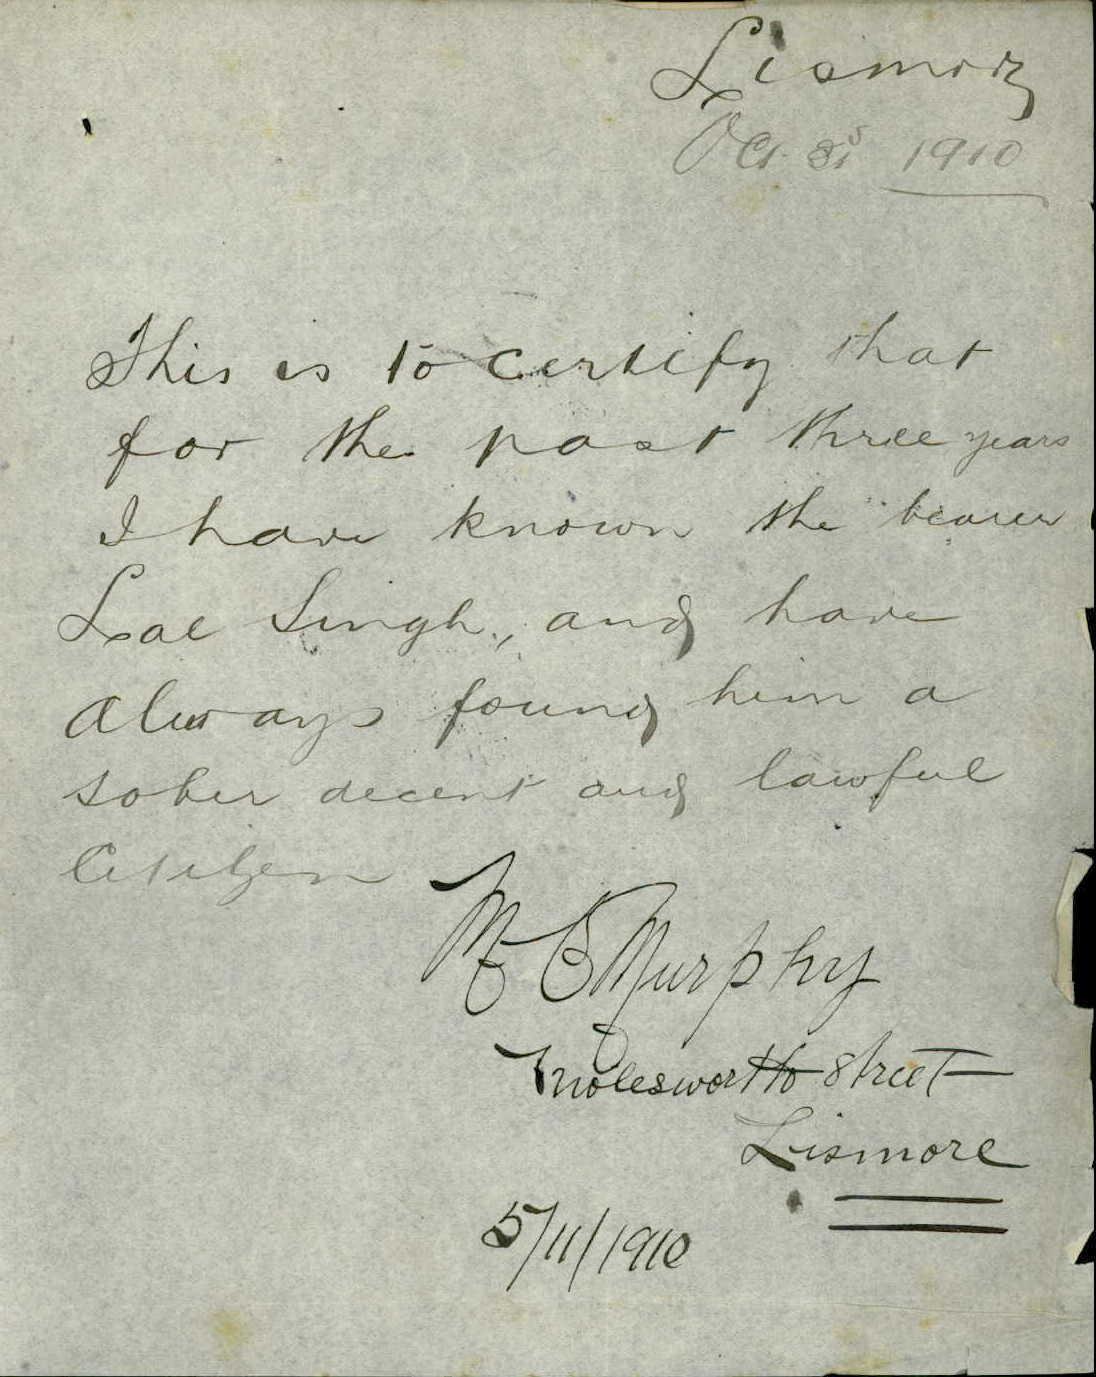 Lismore
Oct. 31st 1910
This is to certify that
for the past three years
I have known the bearer
Lal Singh, and have
always found him a
sober decent and lawful
Citizen
Murphy
Molesworth Street
Lismore
5/11/1910